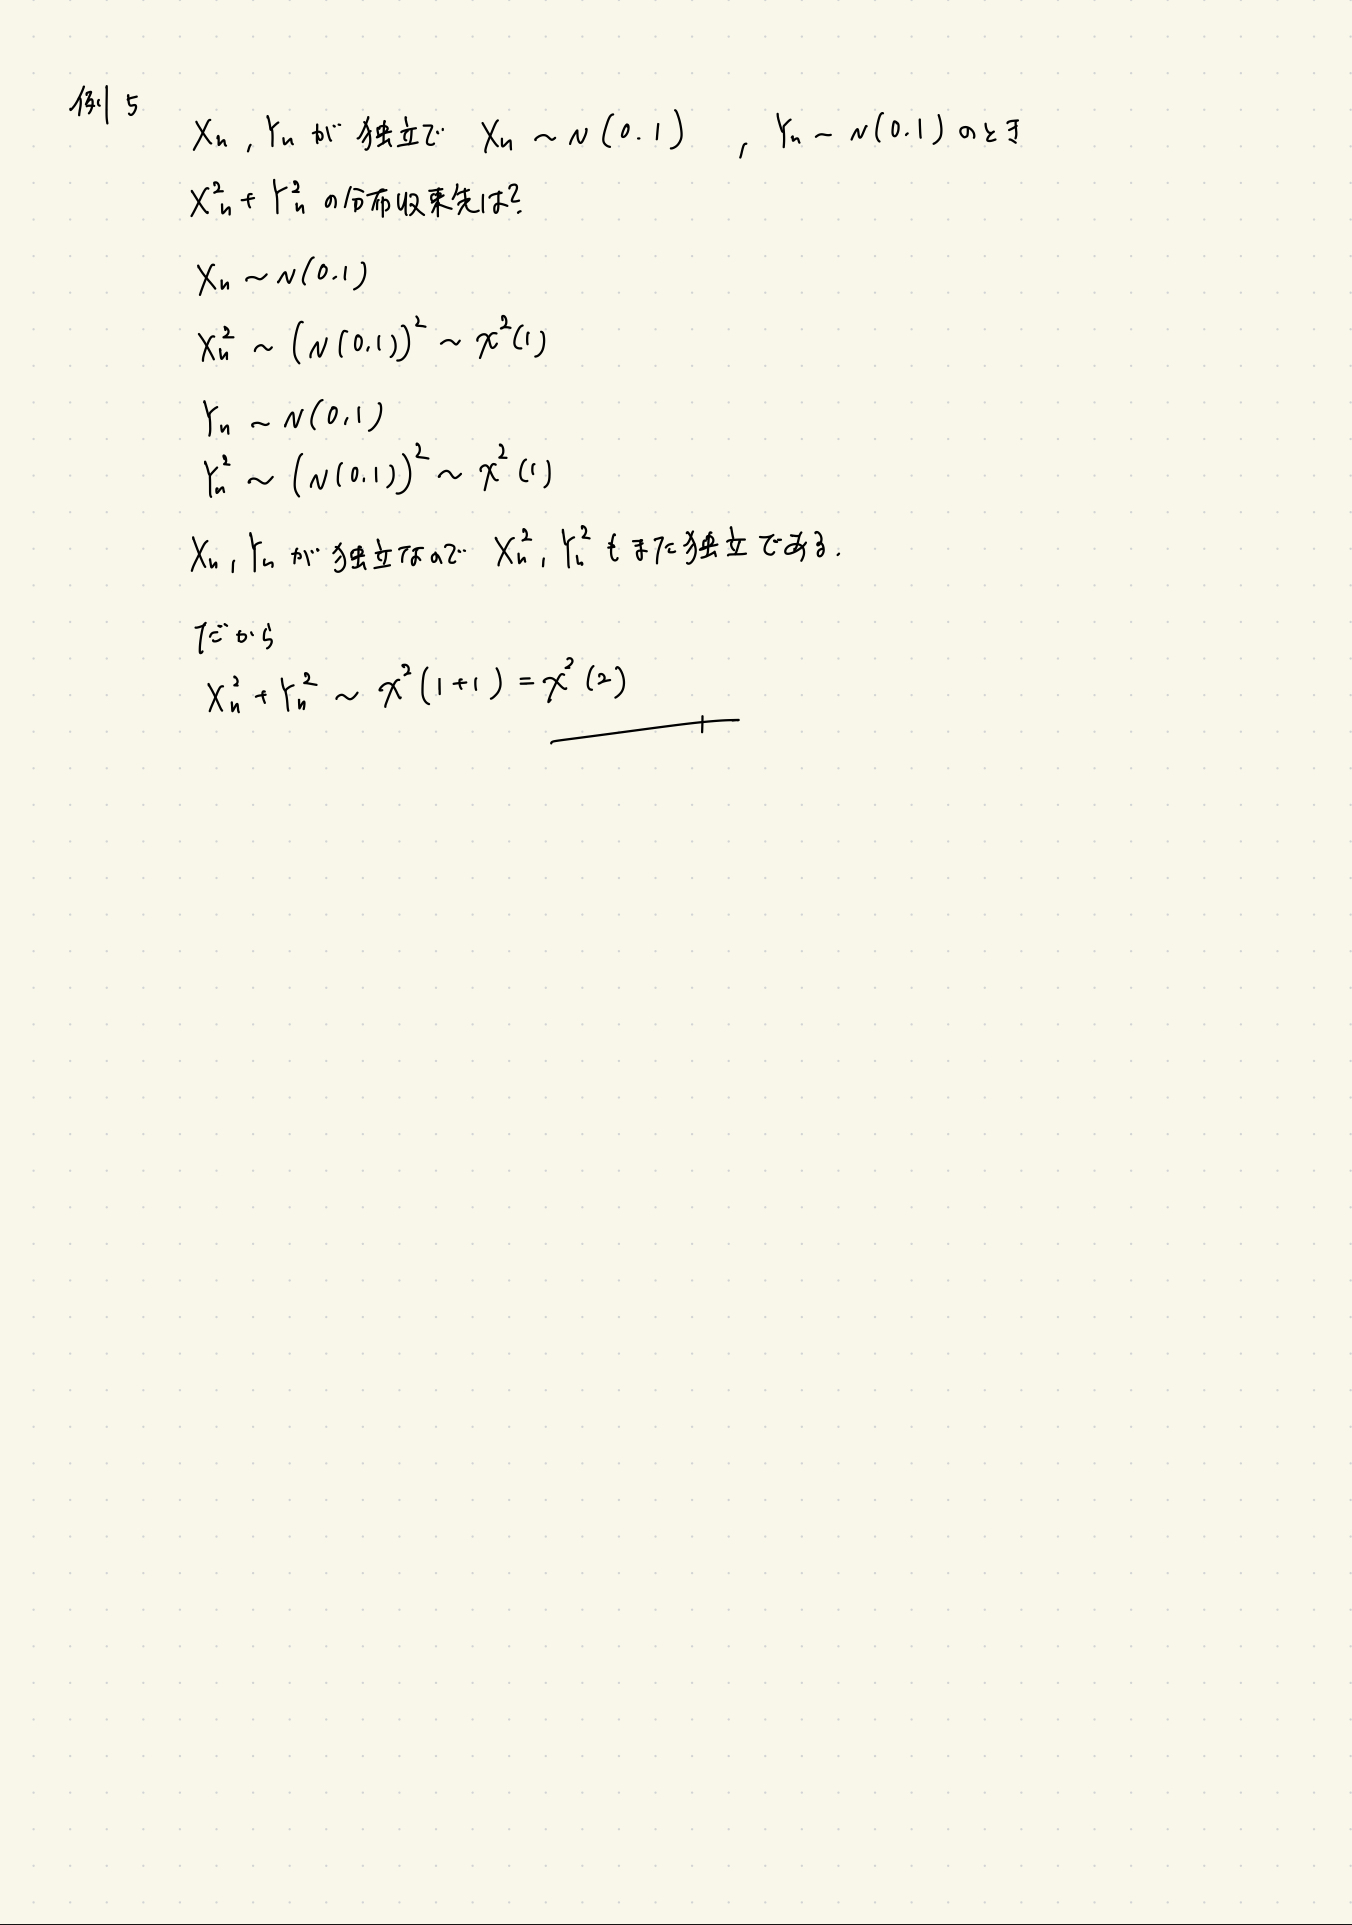 例5
Xn , Yn が 独立で Xn ~ N(0.1) , Yn ~ N(0.1) のとき
X²n + Y²n の分布収束先は?
Xn ~ N(0.1)
Xn² ~ (N(0.1))² ~ χ²(1)
Yn ~ N(0,1)
Yn² ~ (N(0.1))² ~ χ²(1)
Xn , Yn が 独立なので Xn² , Yn² もまた独立である.
だから
Xn² + Yn² ~ χ²(1+1) = χ²(2)